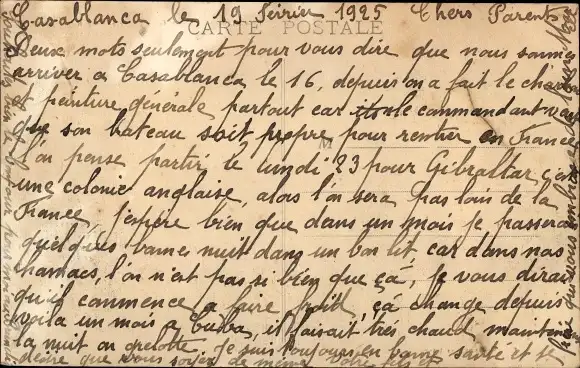 Casablanca le 19 Février 1925 Chers Parents
CARTE POSTALE
Deux mots seulement pour vous dire que nous sommes
arriver a Casablanca le 16, depuis on a fait le charbon
et peinture générale partout car le commandant veut
que son bateau soit propre pour rentrer en France
l'on pense partir le lundi 23 pour Gibraltar, c'est
une colonie anglaise, alors l'on sera pas loin de la
France, j'espère bien que dans un mois je passerai
quelques bonnes nuit dans un bon lit, car dans nos
hamacs, l'on n'est pas si bien que çà, Je vous dirai
qu'il commence a faire froid, çà change depuis
voila un mois a Cuba, il faisait très chaud maintenant
la nuit on grelotte. Je suis toujours en bonne santé et je
désire que vous soyez de même votre fils et